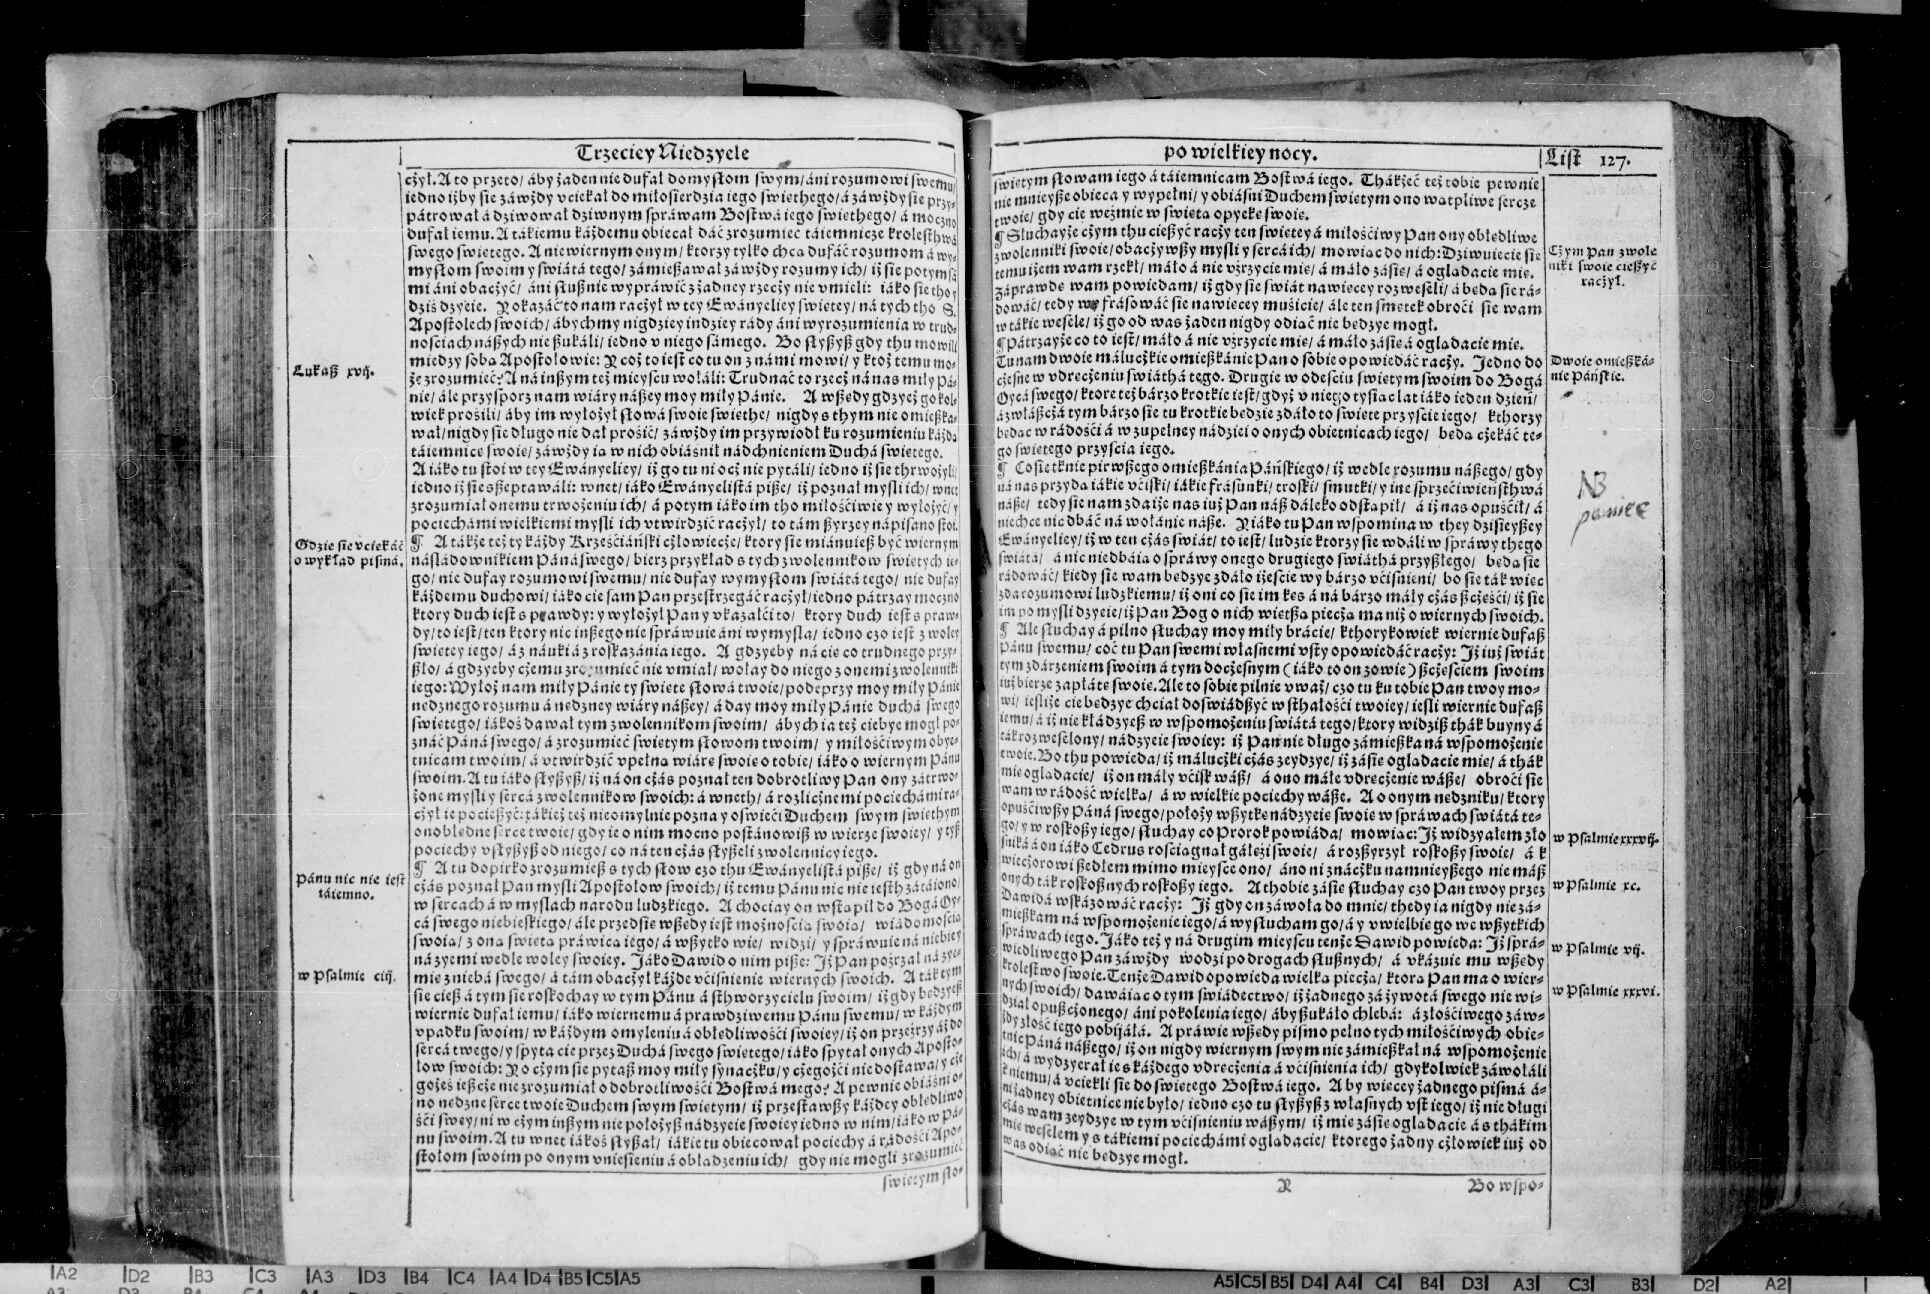 Trzeciey Niedzyele
cżył. A to przeto/ áby żaden nie dufał domysłom swym/ áni rozumowi swemu/
iedno iżby sie záwżdy vciekał do miłosierdzia iego swiethego/ á záwżdy sie przy-
pátrował á dziwował dziwnym spráwam Bostwá iego swiethego/ á mocżno
dufał iemu. A tákiemu káżdemu obiecał dáć zrozumieć táiemnicze krolesthwá
swego swietego. A niewiernym onym/ ktorzy tylko chca dufáć rozumom á wy-
mysłom swoim y swiátá tego/ zámieszawał záwżdy rozumy ich/ iż sie potym sá
mi áni obacżyć/ áni słusznie wypráwić z żadney rzecży nie vmieli: iáko sie tho y
dziś dzyeie. Pokazáć to nam racżył w tey Ewányeliey swietey/ ná tych tho S.
Apostolech swoich/ ábychmy nigdziey indziey rády áni wyrozumienia w trud-
nosciach nászych nie szukáli/ iedno v niego sámego. Bo słyszysz gdy thu mowili
miedzy soba Apostołowie: Y coż to iest co tu on z námi mowi/ y ktoż temu mo-
że zrozumieć? A ná inszym też mieyscu woláli: Trudnáć to rzecż ná nas miły Pá-
nie/ ále przysporz nam wiáry nászey moy miły Pánie. A wszedy gdzyeż go kol-
wiek prosili/ áby im wyłożył słowá swoie swiethe/ nigdy s thym nie omieszká-
wał/ nigdy sie długo nie dał prośić/ záwżdy im przywiodł ku rozumieniu káżda
táiemnice swoie/ záwżdy ia w nich obiáśnił nádchnieniem Duchá swietego.
A iáko tu stoi w tey Ewányeliey/ iż go tu ni ocż nie pytáli/ iedno iż sie thrwożyli/
iedno iż sie szeptawáli: wnet/ iáko Ewányelistá pisze/ iż poznał mysli ich/ wnet
zrozumiał onemu trwożeniu ich/ á potym iáko im tho miłośćiwie y wyłożyć/ y
pociechámi wielkiemi mysli ich vtwirdzić racżył/ to tám szyrzey nápisano stoi.
¶ A tákże też ty káżdy Krześćiáński cżłowiecże/ ktory sie miánuiesz być wiernym
násládownikiem Páná swego/ bierz przykład s tych zwolennikow swietych ie-
go/ nie dufay rozumowi swemu/ nie dufay wymysłom swiátá tego/ nie dufay
káżdemu duchowi/ iáko cie sam Pan przestrzegáć racżył/ iedno pátrzay mocżno
ktory duch iest s prawdy: y wyłożył Pan y vkazałći to/ ktory duch iest s praw-
dy/ to iest/ ten ktory nic inszego nie spráwuie áni wymysla/ iedno czo iest z woley
swietey iego/ á z náuki á z roskazánia iego. A gdzyeby ná cie co trudnego przy-
szło/ á gdzyby cżemu zrozumieć nie vmiał/ wołay do niego z onemi zwolenniki
iego: Wyłoż nam miły Pánie ty swiete słowá twoie/ podeprzy moy miły Pánie
nedznego rozumu á nedzney wiáry nászey/ á day moy miły Pánie duchá swego
swietego/ iákoś dawał tym zwolennikom swoim/ ábych ia też ciebye mogł po-
znáć Páná swego/ á zrozumieć swietym słowom twoim/ y miłośćiwym obye-
tnicam twoim/ á vtwirdzić vpełna wiáre swoie o tobie/ iáko o wiernym Pánu
swoim. A tu iáko słyszysz/ iż ná on cżás poznał ten dobrotliwy Pan ony zátrwo-
żone mysli y sercá zwolennikow swoich: á wneth/ á rozlicżnemi pociechámi ra-
cżył ie pocieszyć: tákież też nieomylnie pozna y oświeći Duchem swym swiethym
ono obłedne serce twoie/ gdy ie o nim mocno postánowisz w wierze swoiey/ y tysz
pociechy vsłyszysz od niego/ co ná ten cżás słyszeli zwolennicy iego.
¶ A tu dopirko zrozumiesz s tych słow czo thu Ewányelistá pisze/ iż gdy ná on
cżás poznał Pan mysli Apostołow swoich/ iż temu Pánu nic nie iesth zátáiono/
w sercach á w myslach narodu ludzkiego. A chociay on wstapił do Bogá Oy-
cá swego niebieskiego/ ále przedsie wszedy iest możnoscia swoia/ wiádomoscia
swoia/ z ona swieta práwica iego/ á wszytko wie/ widzi/ y spráwuie ná niebie y
ná zyemi wedle woley swoiey. Jáko Dawid o nim pisze: Jż Pan poźrzał ná zye-
mie z niebá swego/ á tám obacżył káżde vciśnienie wiernych swoich. A ták tym
sie ciesz á tym sie roskochay w tym Pánu á sthworzycielu swoim/ iż gdy bedzyesz
wiernie dufał iemu/ iáko wiernemu á prawdziwemu Pánu swemu/ w káżdym
vpadku swoim/ w káżdym omyleniu á obłedliwośći swoiey/ iż on przeźrzy áż do
sercá twego/ y spyta cie przez Duchá swego swietego/ iáko spytał onych Aposto-
łow swoich: Po cżym sie pytasz moy miły synacżku/ y cżegożći nie dostawa/ y cże
gożeś ieszcże nie zrozumiał o dobrotliwośći Bostwá mego? A pewnie obiáśnio-
no nedzne serce twoie Duchem swym swietym/ iż przestawszy káżdey obłedliwo
śći swey/ ni w cżym inszym nie położysz nádzyeie swoiey iedno w nim/ iáko w Pá-
nu swoim. A tu wnet iákoś słyszał/ iákie tu obiecował pociechy á rádośći Apo-
stołom swoim po onym vniesieniu á obładzeniu ich/ gdy nie mogli zrozumieć
swietym sło-
Lukasz xvij.
Gdzie sie vciekáć
o wykład pismá.
Pánu nic nie iest
táiemno.
w Psalmie ciij.
po wielkiey nocy.
List 127.
swietym słowam iego á táiemnicam Bostwá iego. Thákżeć też tobie pewnie
nie mnieysze obieca y wypełni/ y obiáśni Duchem swietym ono watpliwe sercze
twoie/ gdy cie weźmie w swieta opyeke swoie.
¶ Słuchayże cżym thu cieszyć racży ten swietey á miłośćiwy Pan ony obłedliwe
zwolenniki swoie/ obacżywszy mysli y sercá ich/ mowiac do nich: Dziwuiecie sie
temu iżem wam rzekł/ máło á nie vźrzycie mie/ á máło zásie/ á ogladacie mie.
Záprawde wam powiedam/ iż gdy sie swiát nawiecey rozweseli/ á beda sie rá-
dowáć/ tedy wy frásowáć sie nawiecey muśicie/ ále ten smetek obroći sie wam
w tákie wesele/ iż go od was żaden nigdy odiáć nie bedzye mogł.
¶ Pátrzayże co to iest/ máło á nie vźrzycie mie/ á máło zásie á ogladacie mie.
Tu nam dwoie málucżkie omieszkánie Pan o sobie opowiedáć racży. Jedno do
cżesne w vdrecżeniu swiáthá tego. Drugie w odesciu swietym swoim do Bogá
Oycá swego/ ktore też bárzo krotkie iest/ gdyż v niego tysiac lat iáko ieden dzień/
á zwłaszcżá tym bárzo sie tu krotkie bedzie zdáło to swiete przyscie iego/ kthorzy
bedac w rádośći á w zupełney nádziei o onych obietnicach iego/ beda cżekáć te-
go swietego przyscia iego.
¶ Co sie tknie pirwszego omieszkánia Páńskiego/ iż wedle rozumu nászego/ gdy
ná nas przyda iákie vćiski/ iákie frásunki/ troski/ smutki/ y ine sprzeciwieństhwá
násze/ tedy sie nam zda iże nas iuż Pan nász dáleko odstapił/ á iż nas opuśćił/ á
niechce nic dbáć ná wołánie násze. Y iáko tu Pan wspomina w they dzisieyszey
Ewányeliey/ iż w ten cżás swiát/ to iest/ ludzie ktorzy sie wdáli w spráwy thego
swiátá/ á nic niedbáia o spráwy onego drugiego swiáthá przyszłego/ beda sie
rádowáć/ kiedy sie wam bedzye zdáło iżeście wy bárzo vćisnieni/ bo sie ták wiec
zda rozumowi ludzkiemu/ iż oni co sie im kes á ná bárzo máły cżás szcżeśći/ iż sie
im po mysli dzyeie/ iż Pan Bog o nich wietsza piecża ma niż o wiernych swoich.
¶ Ale słuchay á pilno słuchay moy miły brácie/ kthorykowiek wiernie dufasz
Pánu swemu/ coć tu Pan swemi własnemi vsty opowiedáć racży: Jż iuż swiát
tym zdárzeniem swoim á tym docżesnym (iáko to on zowie) szcżesciem swoim
iuż bierze zapłáte swoie. Ale to sobie pilnie vważ/ czo tu ku tobie Pan twoy mo-
wi/ iesliże cie bedzye chciał doswiádszyć w sthałośći twoiey/ iesli wiernie dufasz
iemu/ á iż nie kłádzyesz w wspomożeniu swiátá tego/ ktory widzisz thák buyny á
ták rozweselony/ nádzyeie swoiey: iż Pan nie długo zámieszka ná wspomożenie
twoie. Bo thu powieda/ iż málucżki cżás zeydzye/ iż zásie ogladacie mie/ á thák
mie ogladacie/ iż on máły vćisk wász/ á ono máłe vdrecżenie wásze/ obroći sie
wam w rádość wielka/ á w wielkie pociechy wásze. A o onym nedzniku/ ktory
opuśćiwszy Páná swego/ położy wszytke nádzyeie swoie w spráwach swiátá te-
go/ y w roskoszy iego/ słuchay co Prorok powiáda/ mowiac: Jż widzyałem zło
śniká á on iáko Cedrus rosciagnał gáłeźi swoie/ á rozszyrzył roskoszy swoie/ á k
wiecżorowi szedłem mimo mieysce ono/ áno ni znácżku namnieyszego nie mász
onych ták roskosznych roskoszy iego. A thobie zásie słuchay czo Pan twoy przez
Dawidá wskázowáć racży: Jż gdy on záwoła do mnie/ thedy ia nigdy nie zá-
mieszkam ná wspomożenie iego/ á wysłucham go/ á y vwielbie go we wszytkich
spráwach iego. Jáko też y ná drugim mieyscu tenże Dawid powieda: Jż sprá-
wiedliwego Pan záwżdy wodzi po drogach słusznych/ á vkázuie mu wszedy
krolestwo swoie. Tenże Dawid opowieda wielka piecża/ ktora Pan ma o wier-
nych swoich/ dawáiac o tym swiádectwo/ iż żadnego zá żywotá swego nie wi-
dział opuszcżonego/ áni pokolenia iego/ áby szukáło chlebá: á złośćiwego záw-
żdy złość iego pobijáłá. A práwie wszedy pismo pełno tych miłośćiwych obie-
tnic Páná nászego/ iż on nigdy wiernym swym nie zámieszkał ná wspomożenie
ich/ á wydzyerał ie s káżdego vdrecżenia á vćisnienia ich/ gdykolwiek záwołáli
k niemu/ á vciekli sie do swietego Bostwá iego. A by wiecey żadnego pismá á-
ni żadney obietnice nie było/ iedno czo tu słyszysz z własnych vst iego/ iż nie długi
cżás wam zeydzye w tym vćisnieniu wászym/ iż mie zásie ogladacie á s thákim
mie weselem y s tákiemi pociechámi ogladacie/ ktorego żadny cżłowiek iuż od
was odiáć nie bedzye mogł.
R
Bo wspo-
Cżym Pan zwole
niki swoie cieszyć
racżył.
Dwoie omieszká-
nie Páńskie.
NB
w Psalmie xxxvij.
w Psalmie xc.
w Psalmie vij.
w Psalmie xxxvi.
A2 D2 B3 C3 A3 D3 B4 C4 A4 D4 B5 C5 A5
A5 C5 B5 D4 A4 C4 B4 D3 A3 C3 B3 D2 A2